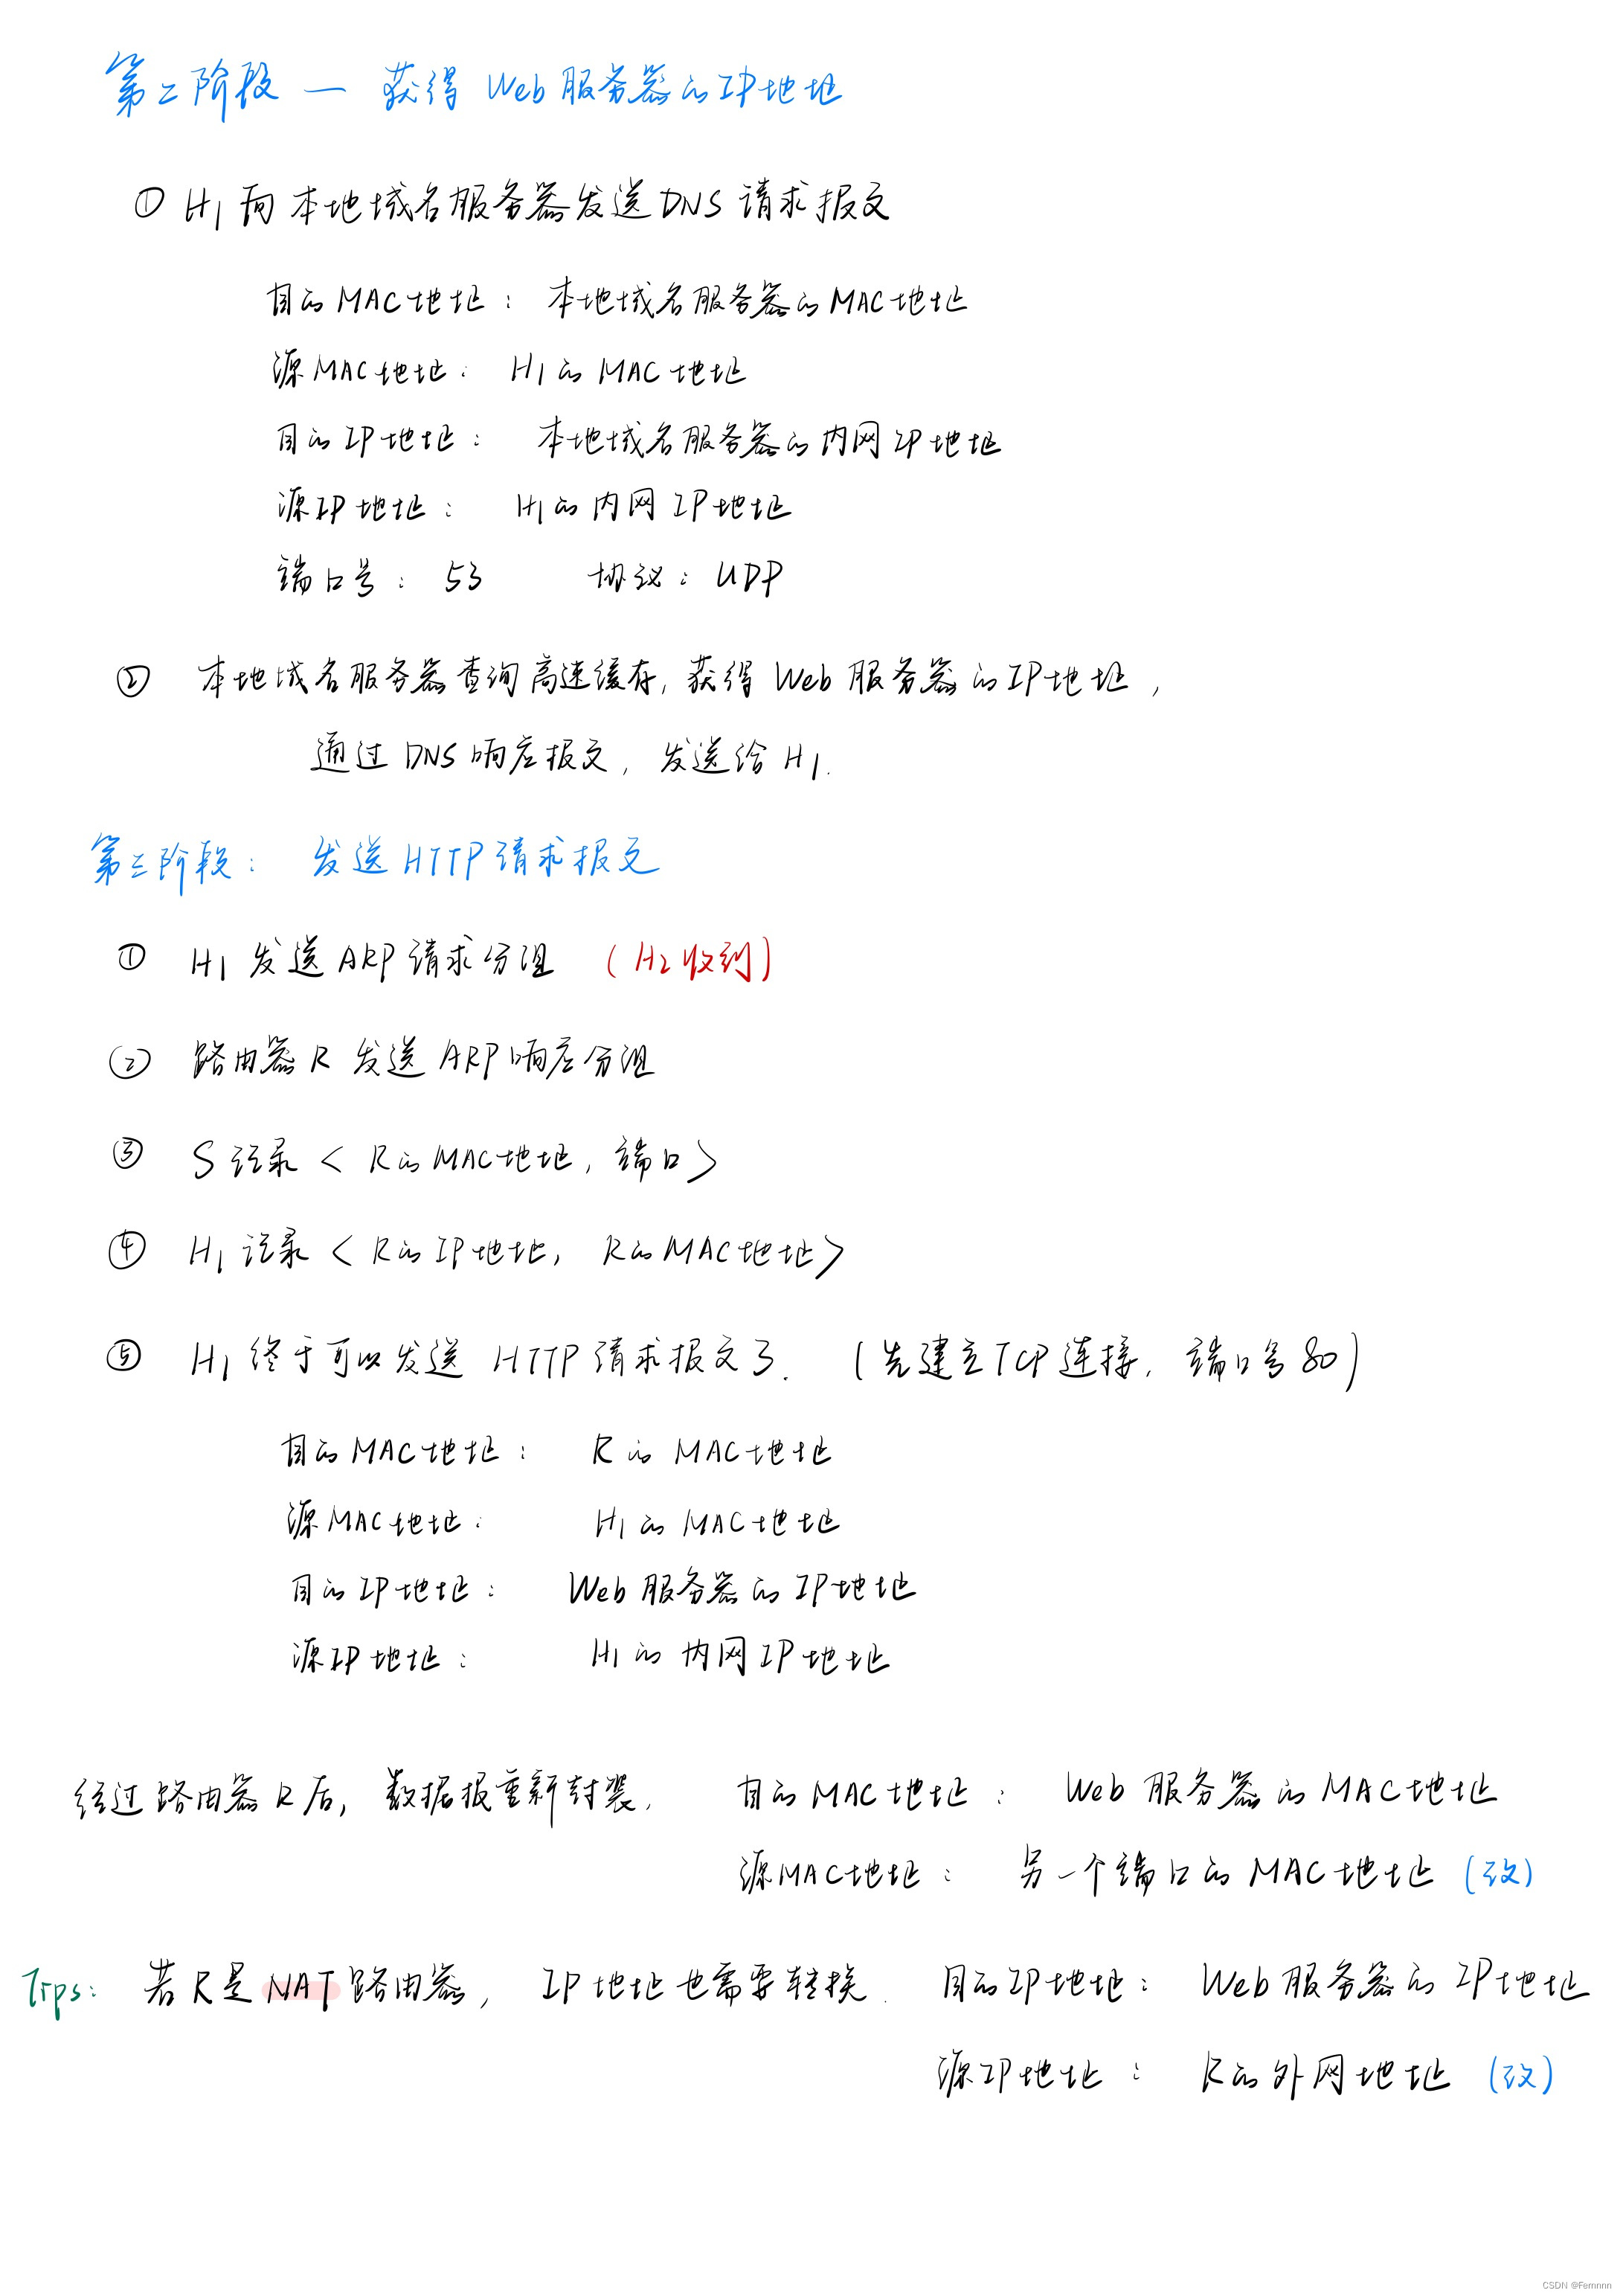 第二阶段 — 获得 Web服务器的IP地址
① H1向本地域名服务器发送DNS请求报文
目的MAC地址： 本地域名服务器的MAC地址
源MAC地址： H1的MAC地址
目的IP地址： 本地域名服务器的内网IP地址
源IP地址： H1的内网IP地址
端口号：53 协议：UDP
② 本地域名服务器查询高速缓存, 获得Web服务器的IP地址,
通过DNS响应报文, 发送给H1.
第三阶段： 发送HTTP请求报文
① H1发送ARP请求分组 (H2收到)
② 路由器R发送ARP响应分组
③ S记录<R的MAC地址, 端口>
④ H1记录<R的IP地址, R的MAC地址>
⑤ H1终于可以发送 HTTP请求报文了. (先建立TCP连接, 端口号80)
目的MAC地址： R的MAC地址
源MAC地址： H1的MAC地址
目的IP地址： Web服务器的IP地址
源IP地址： H1的内网IP地址
经过路由器R后, 数据报重新封装, 目的MAC地址： Web服务器的MAC地址
源MAC地址： 另一个端口的MAC地址 (改)
Tips: 若R是NAT路由器, IP地址也需要转换. 目的IP地址： Web服务器的IP地址
源IP地址： R的外网地址 (改)
CSDN @Fernnn